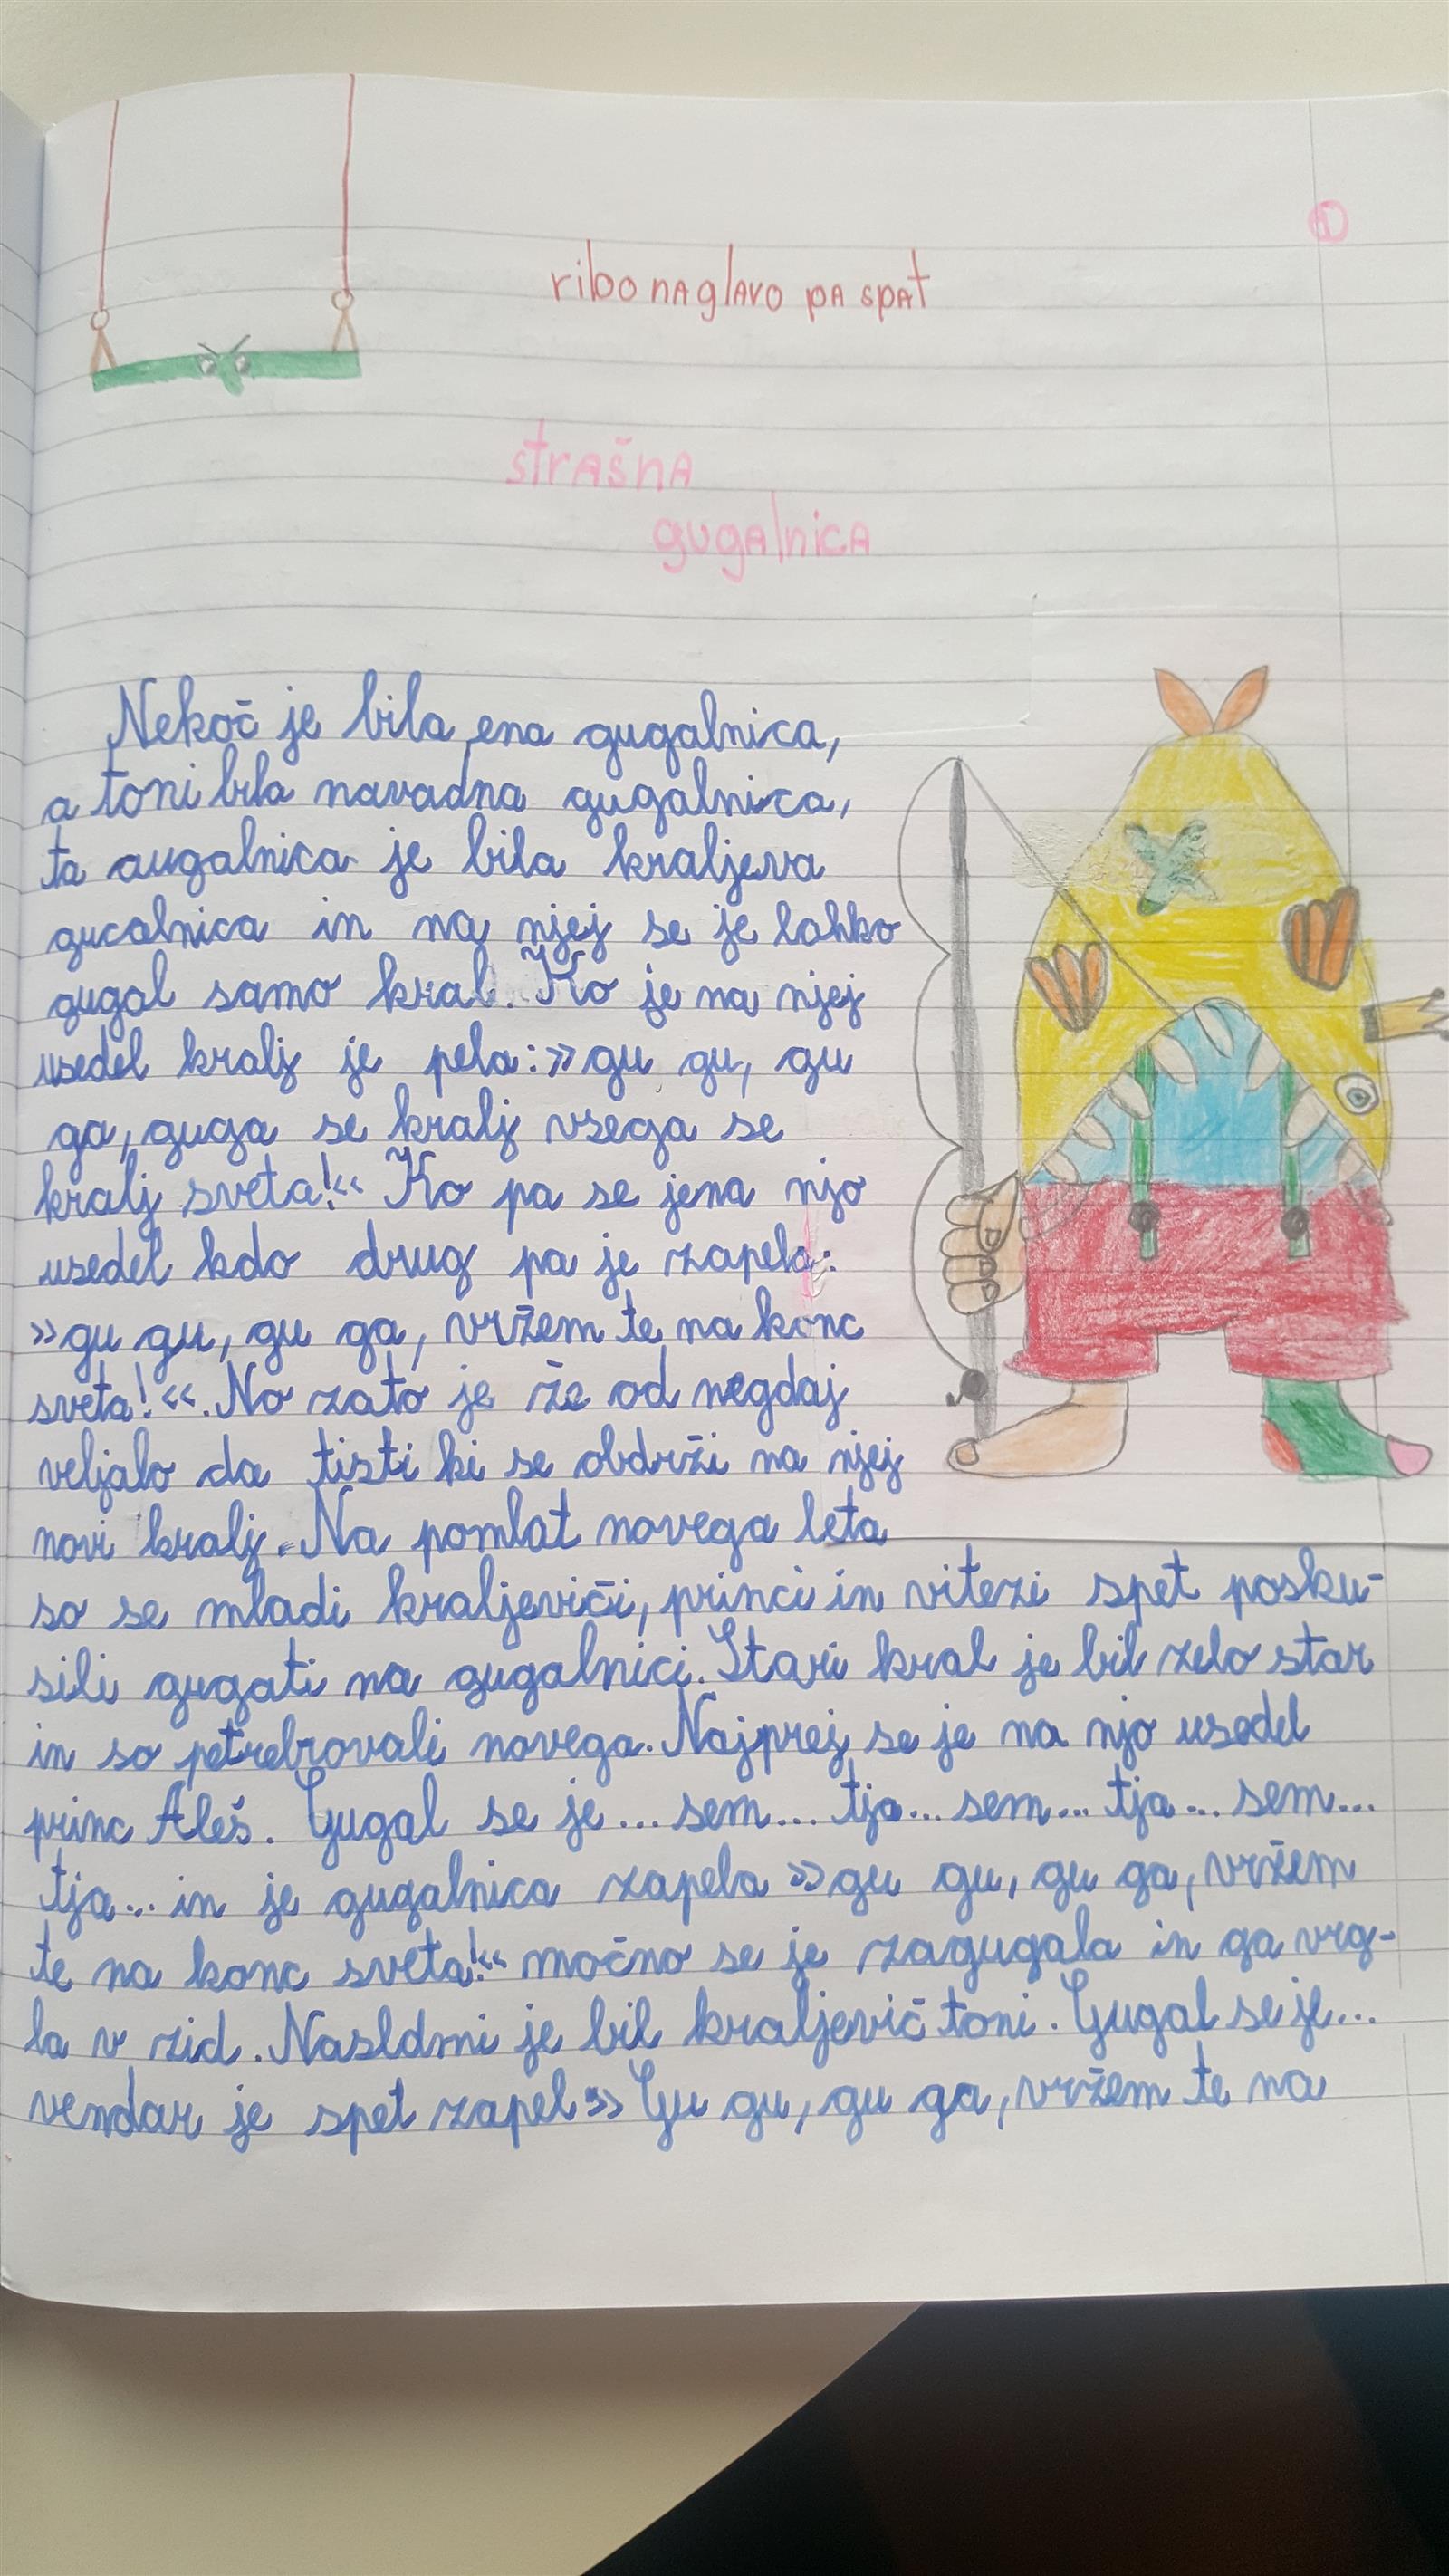 1
ribo na glavo pa spat
strašna
gugalnica
Nekoč je bila ena gugalnica,
a toni bila navadna gugalnica,
ta gugalnica je bila kraljeva
gucalnica in na njej se je lahko
gugal samo kral. Ko je na njej
usedel kralj je pela:»gu gu, gu
ga, guga se kralj vsega se
kralj sveta!« Ko pa se jena njo
usedel kdo drug pa je zapela:
»gu gu, gu ga, vržem te na konc
sveta!«. No zato je že od negdaj
veljalo da tisti ki se obdrži na njej
novi kralj. Na pomlat novega leta
so se mladi kraljeviči, princi in vitezi spet posku-
sili gugati na gugalnici. Stari kral je bil zelo star
in so petrebrovali novega. Najprej se je na njo usedel
princ Aleš. Gugal se je... sem... tja... sem... tja... sem...
tja... in je gugalnica zapela »gu gu, gu ga, vržem
te na konc sveta!« močno se je zagugala in ga vrg-
la v zid. Nasldmi je bil kraljevič toni. Gugal se je...
vendar je spet zapel» Gu gu, gu ga, vržem te na